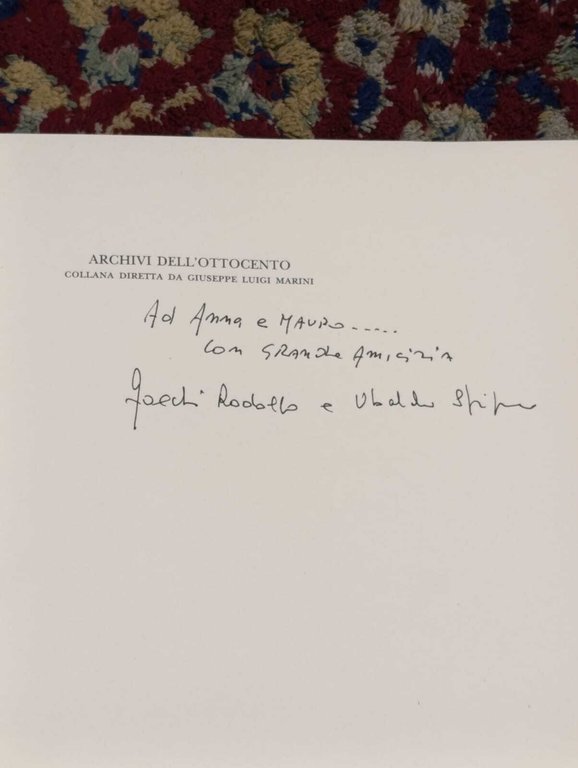 ARCHIVI DELL'OTTOCENTO
COLLANA DIRETTA DA GIUSEPPE LUIGI MARINI
Ad Anna e MAURO.....
con GRANDE AMICIZIA
Rodolfo e Ubaldo